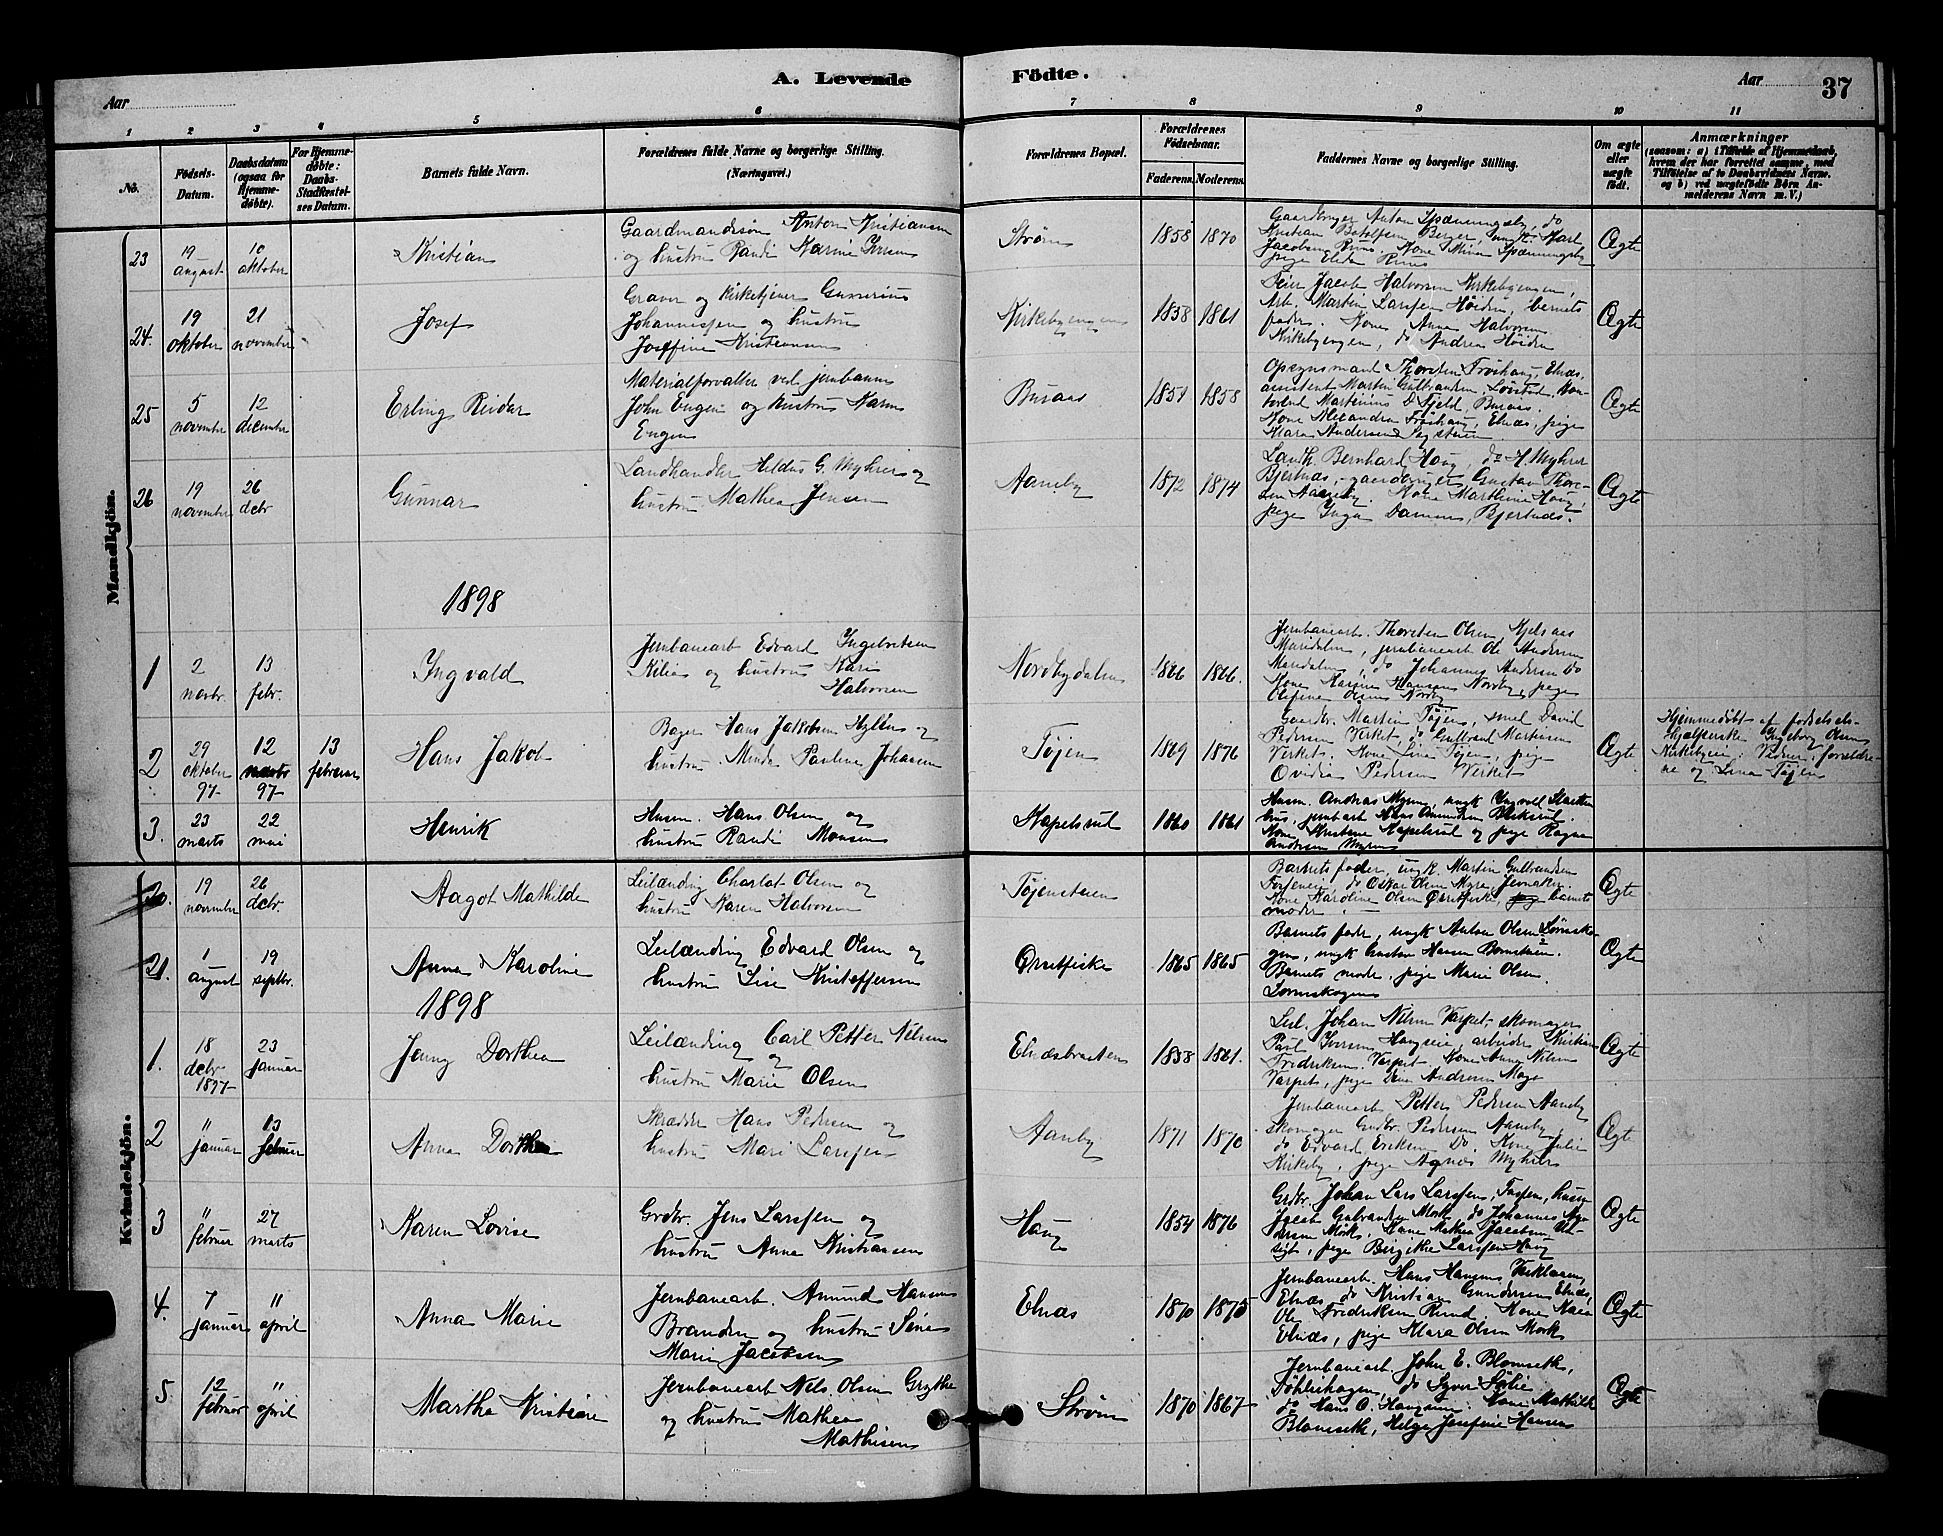 A. Levende Födte.
Aar
Aar
37
1 2 3 4 5 6 7 8 9 10 11
No.
Födsels-
Datum.
Daabsdatum
(ogsaa for
Hjemme-
døbte).
For Hjemme-
døbte:
Daabs-
Stadfæstel-
ses Datum.
Barnets fulde Navn.
Forældrenes fulde Navne og borgerlige Stilling.
(Næringsvei.)
Forældrenes Bopæl.
Forældrenes
Födselsaar.
Faderens.
Moderens.
Faddernes Navne og borgerlige Stilling.
Om ægte
eller
uægte
født.
Anmærkninger
(saasom: a) i Tilfælde af Hjemmedaab,
hvem der har forrettet samme, med
Tilføielse af to Daabsvidners Navne,
og b) ved uægtefødte Børn An-
melderens Navn m. V.)
Mandkjön.
23
19 august
10 oktober
Kristian
Gaardmandssøn Anton Kristiansen
og hustru Randi Karine Iversen
Strøm
1858 1870
Gaardbruger Anton Spænningsby, do
Kristian Botolfsen Berger, ungk. Karl
Jacobsen Ruud, Kone Mina Spænningsby
pige Elida Ruud
Ægte
24.
19 oktober
21 november
Josef
Graver og kirketjener Gunerius
Johannessen og hustru
Josefine Kristiansen
Kirkebyengen
1838 1861
Jacob Halvorsen Kirkebyengen,
Arb. Martin Larssen Høiden, barnets
fader. Kone Anna Halvorsen
Kirkebyengen, do Andrea Høiden
Ægte
25
5 november
12 december
Erling Reidar
Materialforvalter ved jernbanen
John Engen og hustru Karen
Engen
Buraas
1851 1858
Opsynsmand Thorsten Frøshaug, Elnæs,
assistent Martin Gulbrandsen, Løvstad, Kon-
torbud Martinius D Fjeld, Buraas.
Kone Alexandra Frøshaug, Elnæs, pige
Klara Andersen
Ægte
26
19 november
26 debr
Gunnar
Landhandler Heldus G. Myhrer og
hustru Mathea Jensen
Aaneby
1872 1874
Landh. Bernhard Haug, do H. Myhrer
Bjertnæs, gaardbruger Gustav Thor-
sen Aaneby. Kone Marthinie Haug
pige Inga Dammen, Bjertnæs.
Ægte
1898
1
2 novbr.
13 febr.
Ingvald
Jernbanearb Edvard Ingebretsen
Kilias og hustru Kari
Halvorsen
Nordbydalen
1866 1866.
Jernbanearb. Thorsten Olsen, Kjelsaas
Maridalen, jernbanearb Ole Andersen
Maridalen, do Johannes Andersen do
Kone Karine Hansen Nordby, pige
Olefine Olsen Nordby
2
29 oktober 97
12 novbr 97
13 februar
Hans Jakob
Bager Hans Jakobsen Hylen og
hustru Minda Pauline Johansen
Tøjen
1869 1876
Gaardbr. Martin Tøjen, smed David
Pedersen Verket, do Gulbrand Martinsen
Verket. Kone Lina Tøjen, pige
Ovidia Pedersen Verket
Ægte
Hjemmedøbt af fødselsels-
hjælperske Ingeborg Olsen
Kirkebyeie. Vidner: forældre-
ne og Lina Tøjen
3.
23 marts
22 mai
Henrik
Husm. Hans Olsen og
hustru Randi Monsen
Kapelsrud
1860 1861
Husm. Andreas Myren, ungk Ingvald Slaatten-
hus, jernbarb Hans Amundsen Bliksrud.
Kone Kristine Kapelsrud og pige Ragna
Andersen Myren
Kvindekjön.
20.
19 november
26 debr.
Aagot Mathilde
Leilænding Charlot Olsen og
hustru Karen Halvorsen
Tøjensteien
Barnets fader, ungk. Martin Gulbrandsen
do Oskar Olsen Myre, Jevnaker.
Kone Karoline Olsen Ørretfiske, barnets
moder.
Ægte
21.
1 august
19 septbr.
Anna Karoline
Leilænding Edvard Olsen og
hustru Lise Kristoffersen
Ørretfiske
1865 1865
Barnets fader, ungk Anton Olsen Lønnsko-
gen, ungk Gustav Hansen
Barnets moder, pige Marie Olsen
Lonnskogen
Ægte
1898
1.
18 debr 1897
23 januar
Jenny Dorthea
Leilænding Carl Petter Nilsen
og
hustru Marie Olsen
Elnæsbraaten
1858 1861.
Leil. Johan Nilsen Varpet, skomager
Paul Iversen Haugseie, arbeider Kristian
Fredriksen Varpet. Kone Anna Nilsen
Varpet, pige Andersen Mago
Ægte
2
" januar
13 februar
Anna Dorthea
Skrædder Hans Pedersen og
hustru Mari Larssen
Aaneby
1871 1870
Jernbanearb Petter Pedersen Aaneby
skomager Gudbr. Pedersen Aaneby,
do Edvard Eriksen Do, Kone Julie
Kirkeby, pige Agnes Myhrer
Ægte
3
" februar
27 marts
Karen Lovise
Grdbr. Jens Larssen og
hustru Anna Kristiansen
Haug
1854 1876
Grdbr. Johan Lars Larssen, Tøsen, husm
Jacob Gulbrandsen Mork, do Johannes
Mork, Kone Mathea Jacobsen
pige Birgitte Larssen Haug
Ægte
4.
7 januar
" april
Anna Marie
Jernbanearb. Amund Hansen
Branden og hustru Sine
Marie Jacobsen
Elnæs
1870 1875
Jernbanearb. Hans Hansen,
Elnæs, do Kristian Gundersen Elnæs,
Ole Fredriksen Ruud, Kone
Elnæs, pige Klara Olsen Mork
Ægte
5
12 februar
" april
Martha Kristine
Jernbanearb Nils Olsen Grythe
og hustru Mathea
Mathisen
Strøm
1870 1867
Jernbanearb. John E. Blomseth,
do
do Hans O. Haugseie. Kone Mathilde
Blomseth, Helga Josefine Hansen
Ægte